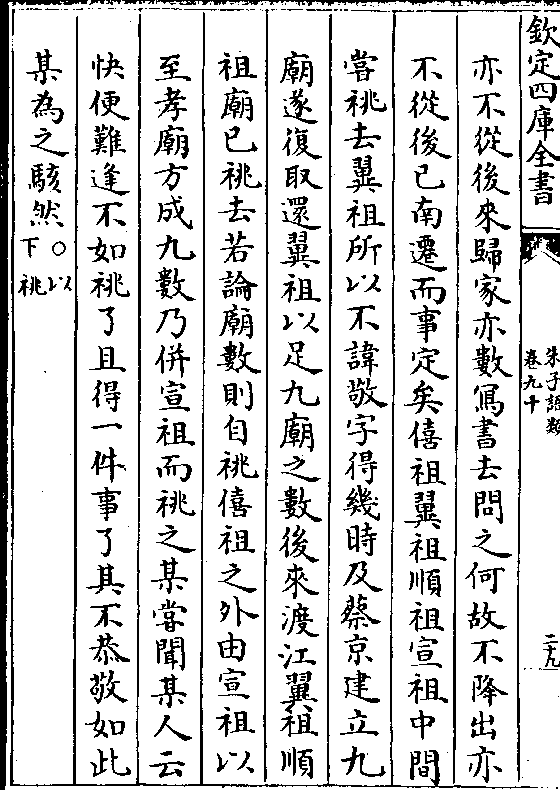 欽定四庫全書
朱子語類
卷九十
二九
亦不從後來歸家亦數寫書去問之何故不降出亦
不從後已南遷而事定矣僖祖翼祖順祖宣祖中間
嘗祧去翼祖所以不諱敬字得幾時及蔡京建立九
廟遂復取還翼祖以足九廟之數後來渡江翼祖順
祖廟已祧去若論廟數則自祧僖祖之外由宣祖以
至孝廟方成九數乃併宣祖而祧之某嘗聞某人云
快便難逢不如祧了且得一件事了其不恭敬如此
某為之駭然○以下祧